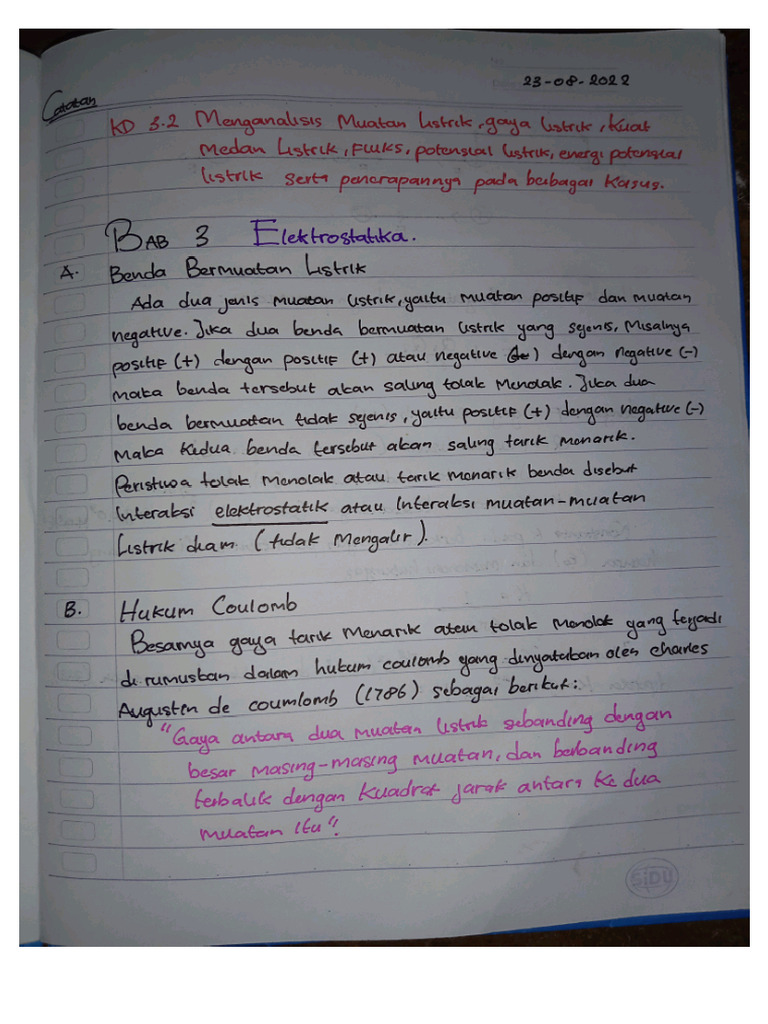 23-08-2022
Catatan
KD 3.2 Menganalisis Muatan Listrik, gaya listrik, Kuat
Medan Listrik, Fluks, potensial listrik, energi potensial
listrik serta penerapannya pada berbagai Kasus.
BAB 3 Elektrostatika.
A. Benda Bermuatan Listrik
Ada dua jenis muatan listrik, yaitu muatan positif dan muatan
negative. Jika dua benda bermuatan listrik yang sejenis, Misalnya
positif (+) dengan positif (+) atau negative (-) dengan negative (-)
maka benda tersebut akan saling tolak Menolak. Jika dua
benda bermuatan tidak sejenis, yaitu positif (+) dengan negative (-)
Maka Kedua benda tersebut akan saling tarik menarik.
Peristiwa tolak Menolak atau tarik menarik benda disebut
interaksi elektrostatik atau Interaksi muatan-muatan
Listrik diam (tidak Mengalir).
B. Hukum Coulomb
Besarnya gaya tarik Menarik atau tolak Menolak yang terjadi
di rumuskan dalam hukum coulomb yang dinyatakan oleh charles
Augusten de coumlomb (1786) sebagai berikut:
"Gaya antara dua muatan listrik sebanding dengan
besar masing-masing muatan, dan berbanding
terbalik dengan Kuadrat jarak antara Ke dua
muatan itu".
SiDU